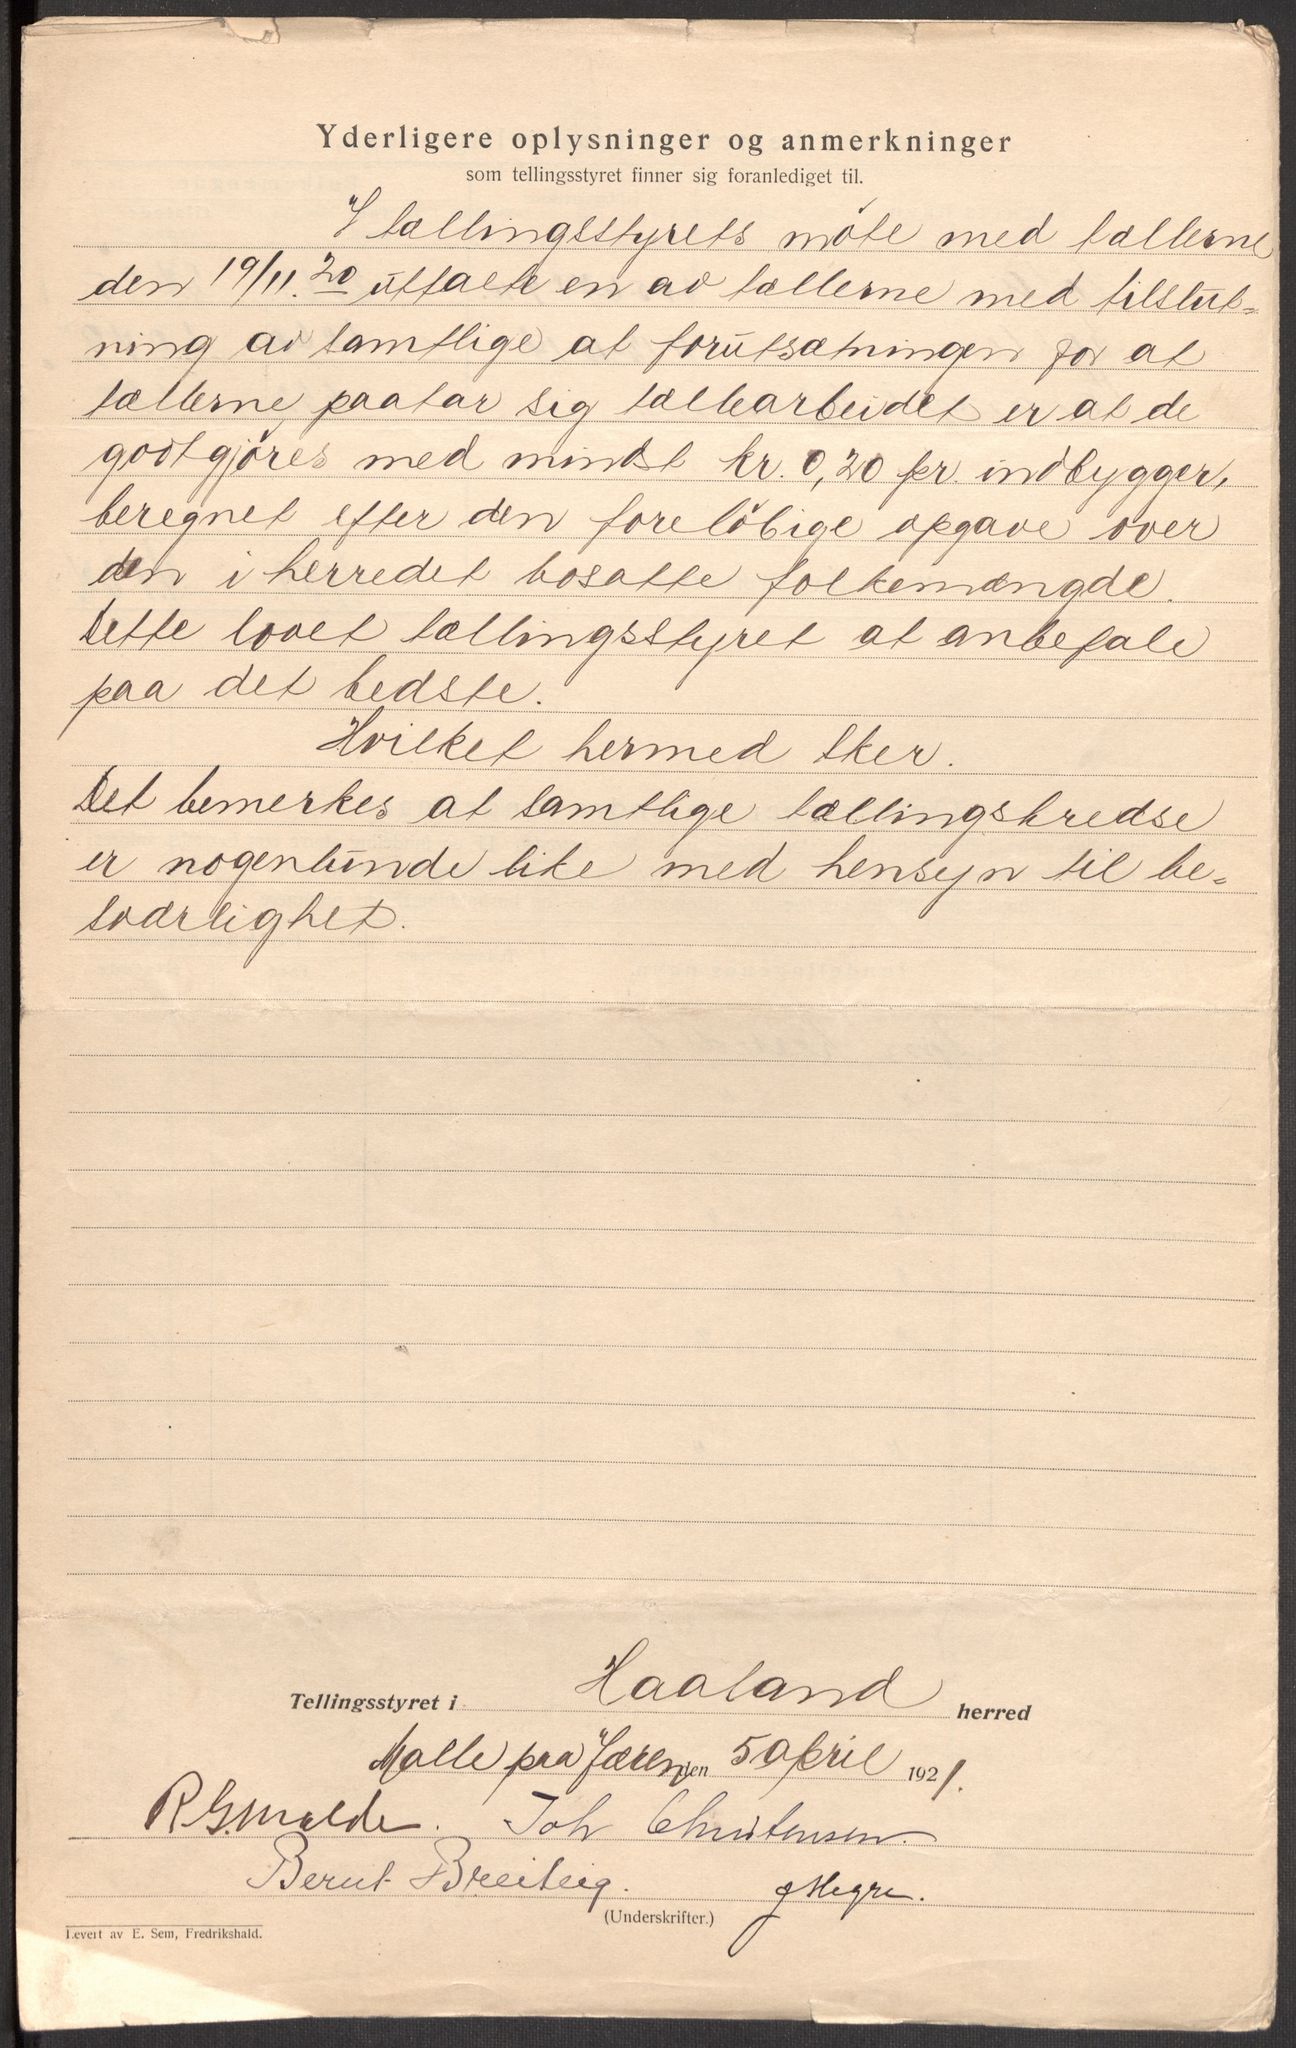 Yderligere oplysninger og anmerkninger
som tellingsstyret finner sig foranlediget til.
I tællingsstyrets møte med tællerne
den 19/11. 20 uttalte en av tællerne med tilslut-
ning av samtlige at forutsætningen for at
tællerne paatar sig tællearbeidet er at de
godtgjøres med mindst kr. 0,20 pr. indbygger,
beregnet efter den foreløbige opgave over
den i herredet bosatte folkemængde.
Dette lovet tællingsstyret at anbefale
paa det bedste.
Hvilket hermed sker.
Det bemerkes at samtlige tællingskredse
er nogenlunde like med hensyn til be-
sværlighet.
Tellingsstyret i Haaland herred
Malle paa Jæren den 5 April 1921.
R G. Malde. Joh Christensen.
Bernt Breiteig. J Hegre.
(Underskrifter.)
Levert av E. Sem, Fredrikshald.